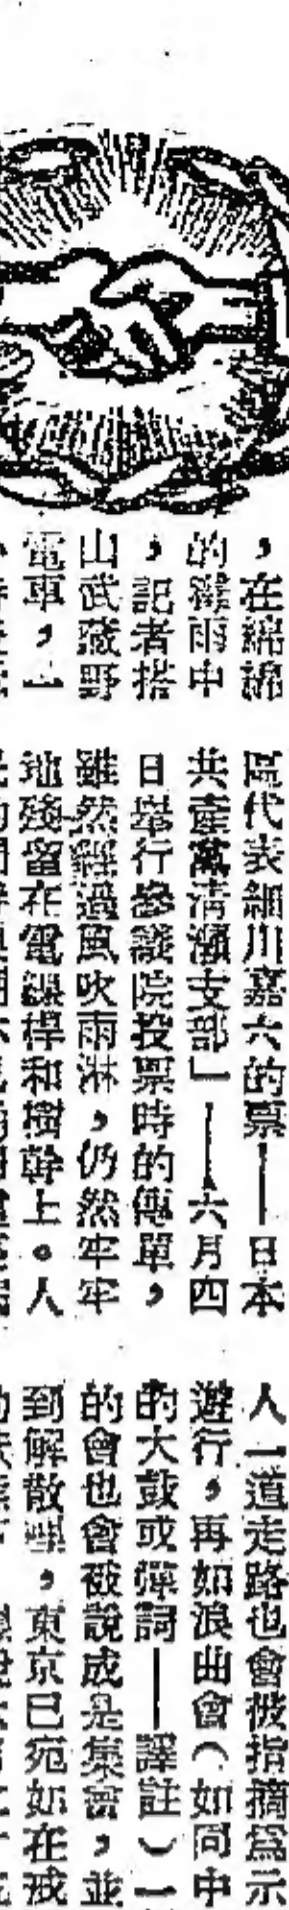 ，在綿綿
的雜雨中
，記者搭
山武蔵野
電車，一
區代表細川嘉六的票——日本
共產黨清瀨支部」——六月四
日舉行參議院投票時的傳單，
雖然經過風吹雨淋，仍然牢牢
地殘留在電線桿和樹幹上。人
人一道走路也會被指摘爲示
遊行，再如浪曲會（如同中
的大鼓或彈詞——譯註）一
的會也會被說成是集會，並
到解散哩，東京已宛如在戒